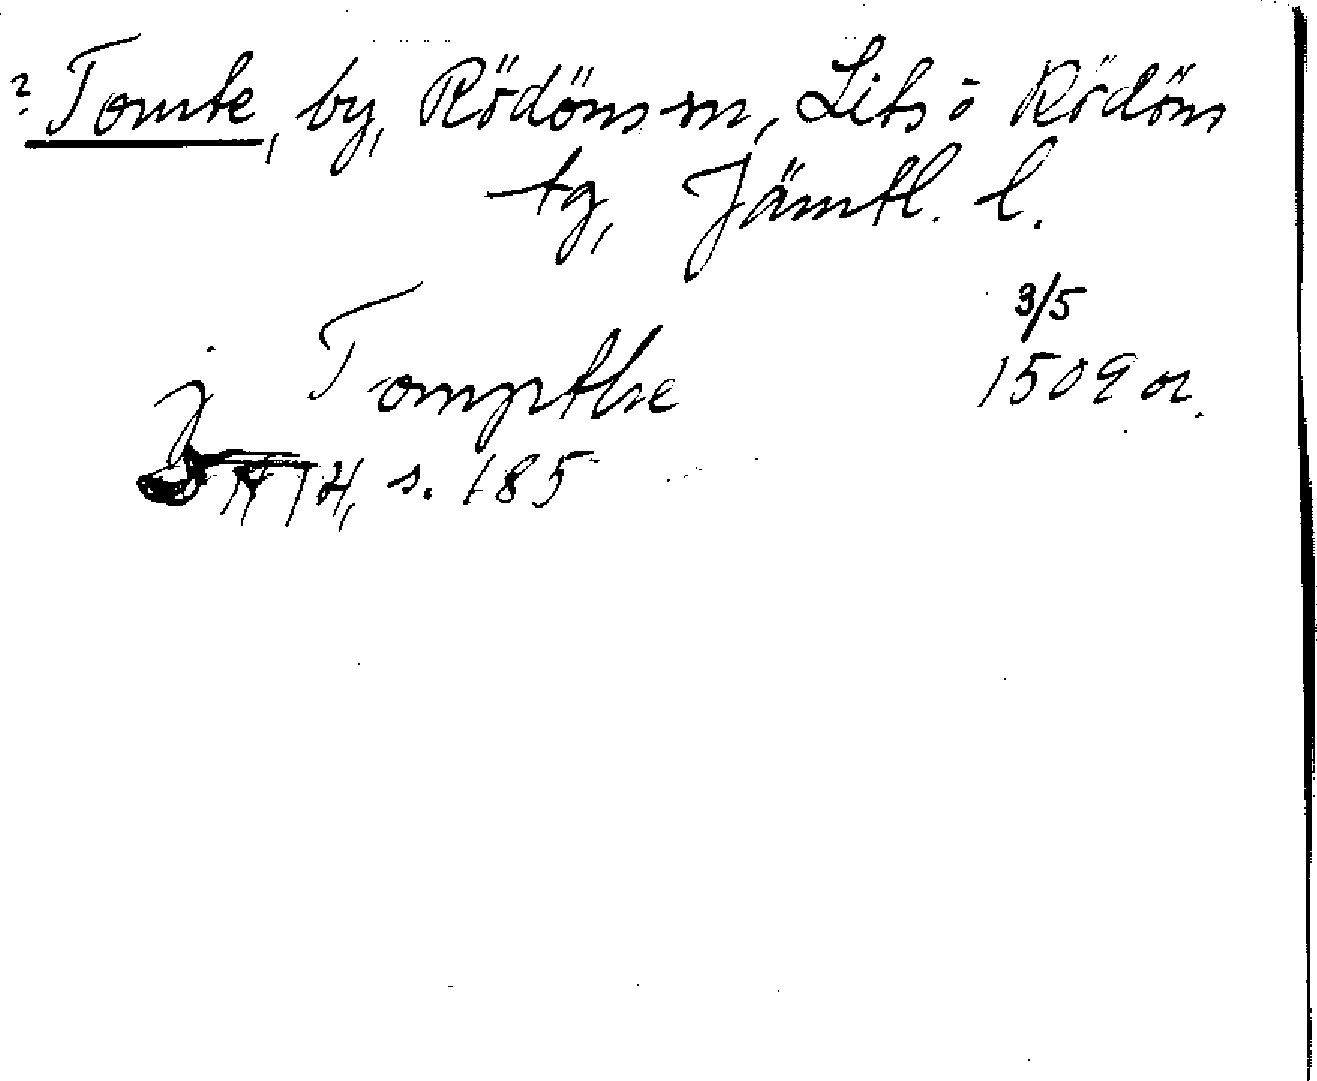 ? Tomte, by, Rödöns sn, Lits o Rödöns
tg, Jämtl. l.
3/5
j Tompthe 1509 or.
JHTH, s. 185